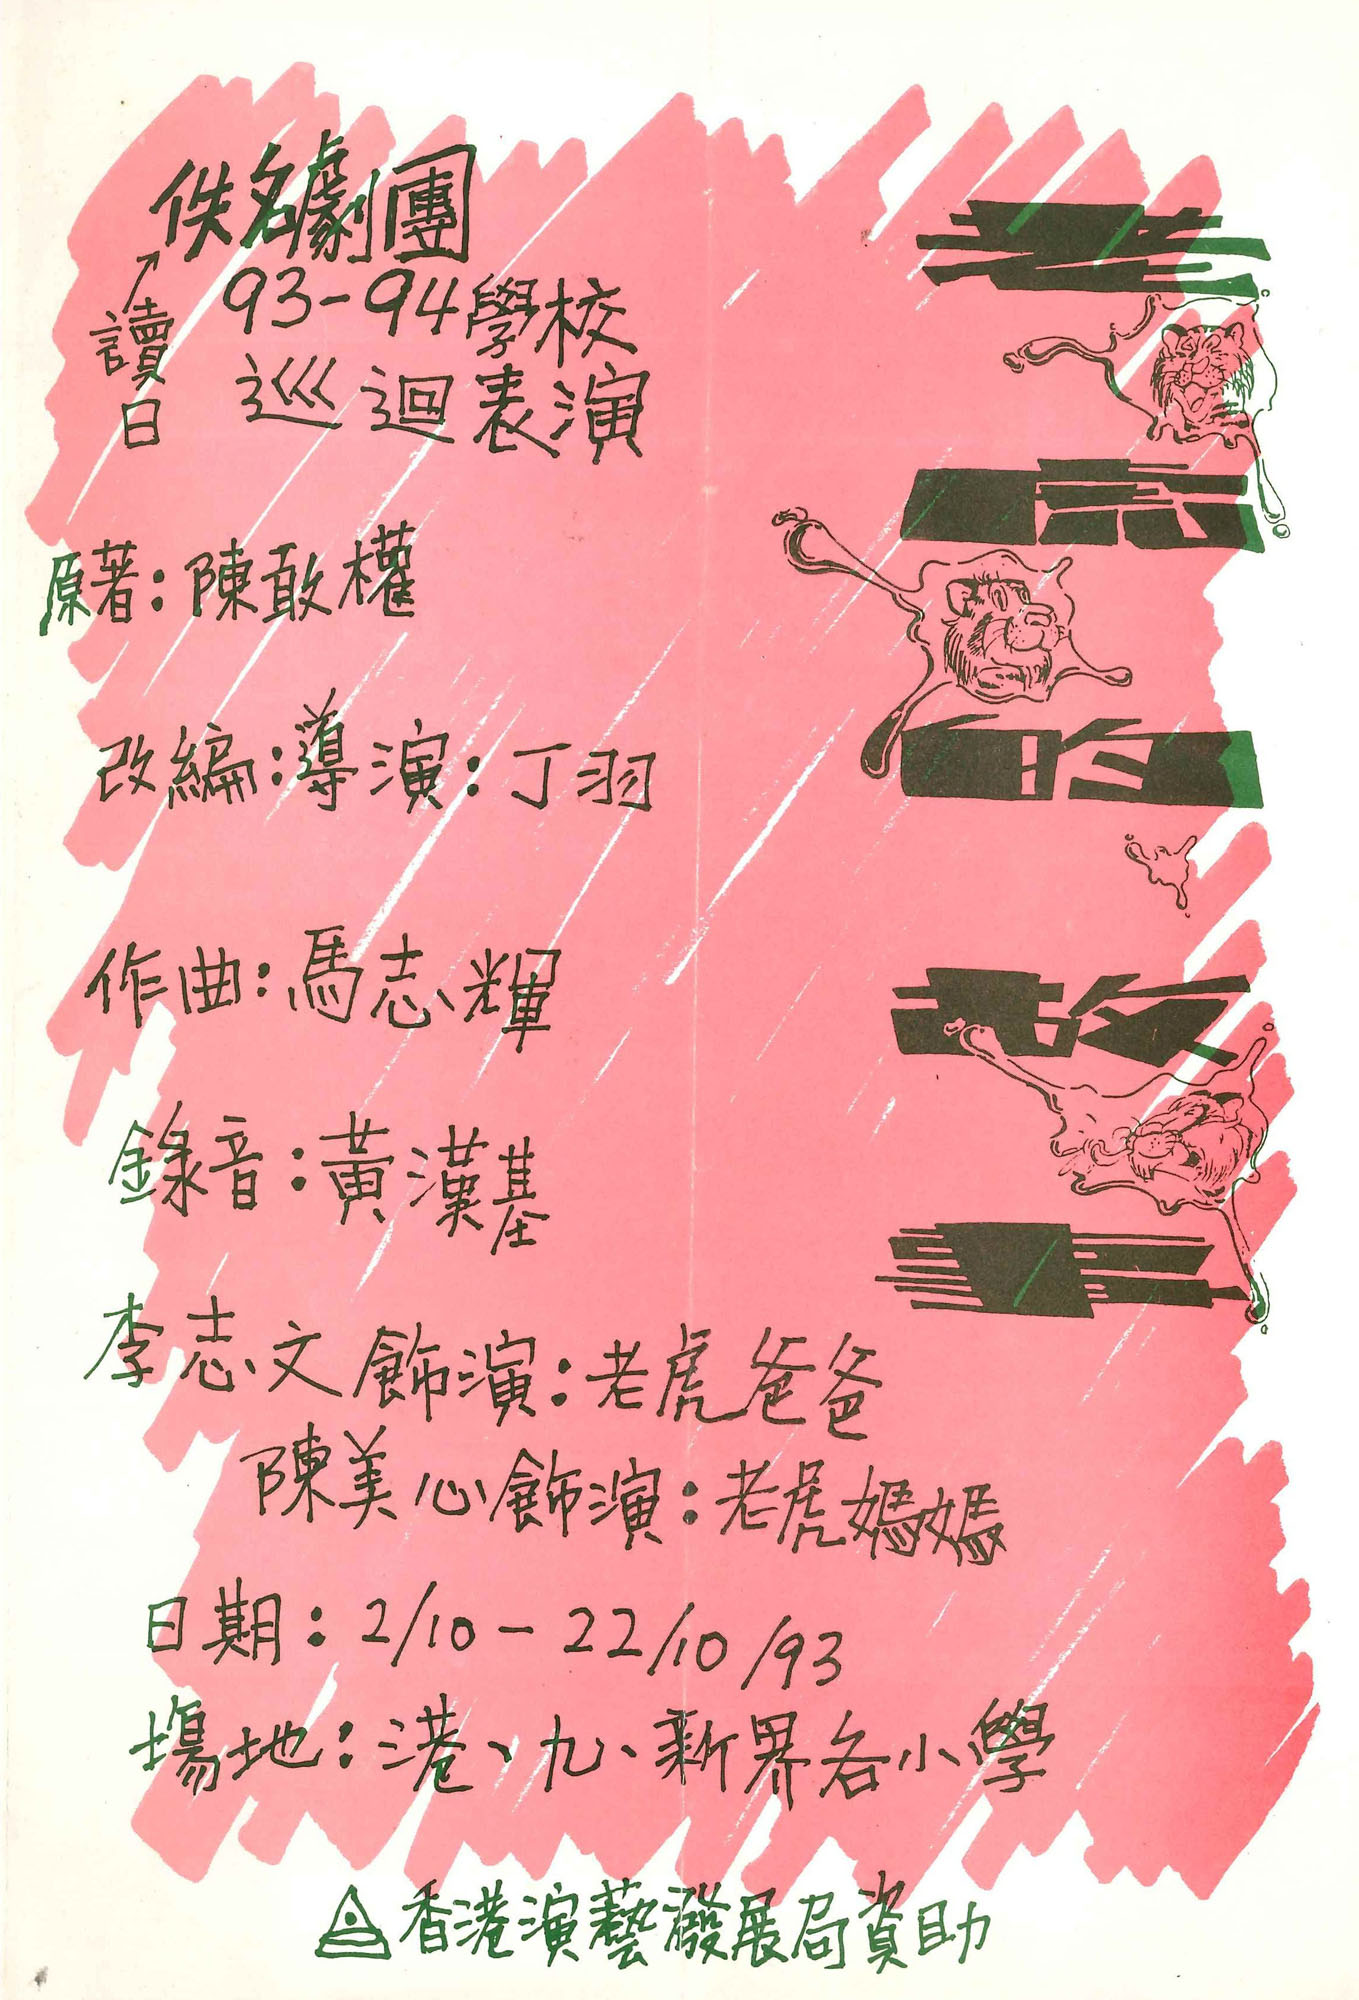 佚名劇團
讀日
93-94學校
巡迴表演
老
虎
的
故
事
原著：陳敢權
改編：導演：丁羽
作曲：馬志輝
錄音：黃漢基
李志文飾演：老虎爸爸
陳美心飾演：老虎媽媽
日期：2/10-22/10/93
塲地：港、九、新界各小學
香港演藝發展局資助